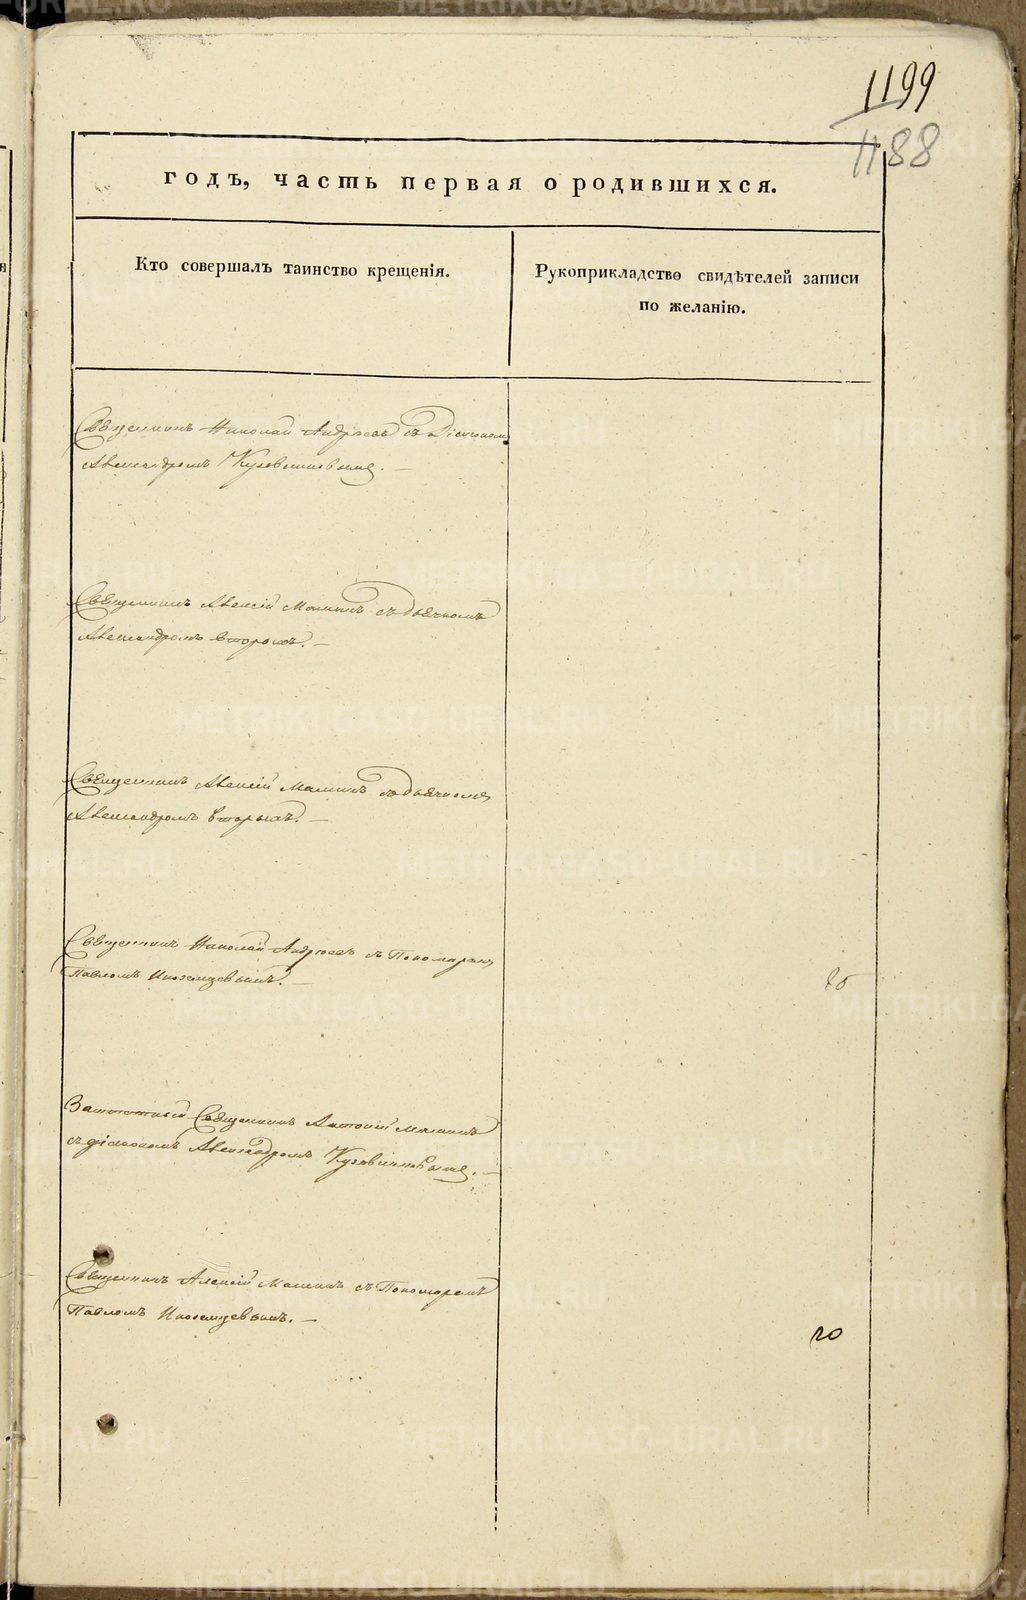 1199
1188
годъ, часть первая о родившихся.
Кто совершалъ таинство крещенія.
Рукоприкладство свидѣтелей записи
по желанію.
Священникъ Николай Андреевъ съ Діакономъ
Александромъ Кузовниковымъ. —
Священникъ Алексій Маминъ съ дьячкомъ
Александромъ вторымъ. —
Священникъ Алексій Маминъ съ дьячкомъ
Александромъ вторымъ. —
Священникъ Николай Андреевъ съ Пономаремъ
Павломъ Иноземцевымъ. —
Заштатный Священникъ Маминъ
съ діакономъ Александромъ Кузовниковымъ. —
Священникъ Алексій Маминъ съ Пономаремъ
Павломъ Иноземцевымъ. —
METRIKI.GASO-URAL.RU